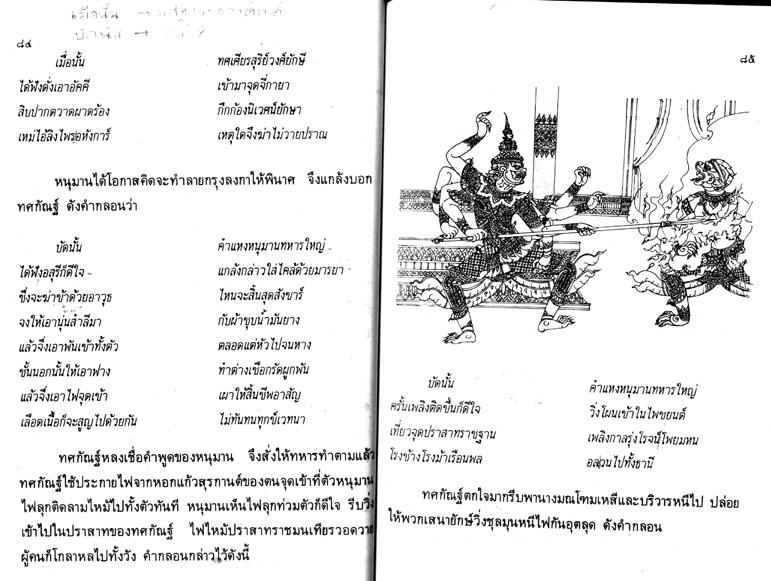 เมื่อนั้น →
บัดนั้น →
๘๔
เมื่อนั้น ทศเศียรสุริย์วงศ์ยักษี
ได้ฟังดั่งเอาอัคคี เข้ามาจุดจี่กายา
สิบปากตวาดผาดร้อง กึกก้องนิเวศน์ยักษา
เหม่ไอ้ลิงไพรอหังการ์ เหตุใดจึงฆ่าไม่วายปราณ
หนุมานได้โอกาสคิดจะทำลายกรุงลงกาให้พินาศ จึงแกล้งบอก
ทศกัณฐ์ ดังคำกลอนว่า
บัดนั้น คำแหงหนุมานทหารใหญ่
ได้ฟังอสุรีก็ดีใจ แกล้งกล่าวใส่ไคล้ด้วยมารยา
ซึ่งจะฆ่าข้าด้วยอาวุธ ไหนจะสิ้นสุดสังขาร์
จงให้เอานุ่นสำลีมา กับผ้าชุบน้ำมันยาง
แล้วจึ่งเอาพันเข้าทั้งตัว ตลอดแต่หัวไปจนหาง
ชั้นนอกนั้นให้เอาฟาง ทำต่างเชือกรัดผูกพัน
แล้วจึ่งเอาไฟจุดเข้า เผาให้สิ้นชีพอาสัญ
เลือดเนื้อก็จะสูญไปด้วยกัน ไม่ทันทนทุกข์เวทนา
ทศกัณฐ์หลงเชื่อคำพูดของหนุมาน จึงสั่งให้ทหารทำตามแล้ว
ทศกัณฐ์ใช้ประกายไฟจากหอกแก้วสุรกานต์ของตนจุดเข้าที่ตัวหนุมาน
ไฟลุกติดลามไหม้ไปทั้งตัวทันที หนุมานเห็นไฟลุกท่วมตัวก็ดีใจ รีบวิ่ง
เข้าไปในปราสาทของทศกัณฐ์ ไฟไหม้ปราสาทราชมนเทียรวอดวาย
ผู้คนก็โกลาหลไปทั้งวัง คำกลอนกล่าวไว้ดังนี้
๘๕
บัดนั้น คำแหงหนุมานทหารใหญ่
ครั้นเพลิงติดขึ้นก็ดีใจ วิ่งโผนเข้าในไพชยนต์
เที่ยวจุดปราสาทราชฐาน เพลิงกาลรุ่งโรจน์โพยมหน
โรงช้างโรงม้าเรือนพล อลวนไปทั้งธานี
ทศกัณฐ์ตกใจมากรีบพานางมณโฑมเหสีและบริวารหนีไป ปล่อย
ให้พวกเสนายักษ์วิ่งชุลมุนหนีไฟกันอุตลุด ดังคำกลอน